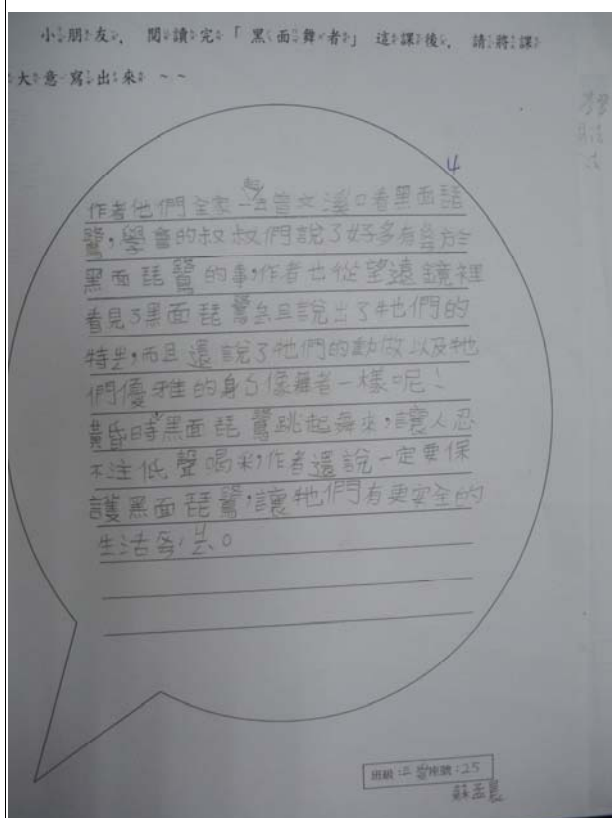 小朋友, 閱讀完「黑面舞者」這課後, 請將課
大意寫出來 ~ ~
4
作者他們全家一起去曾文溪口看黑面琵
鷺,學會的叔叔們說了好多有關於
黑面琵鷺的事,作者也從望遠鏡裡
看見了黑面琵鷺並且說出了牠們的
特ㄓ,而且還說了牠們的動做以及牠
們優雅的身ㄎ像舞者一樣呢!
黃昏時黑面琵鷺跳起舞來,讓人忍
不注低聲喝彩,作者還說一定要保
護黑面琵鷺,讓牠們有更安全的
生活
班級: 座號:25
蘇孟